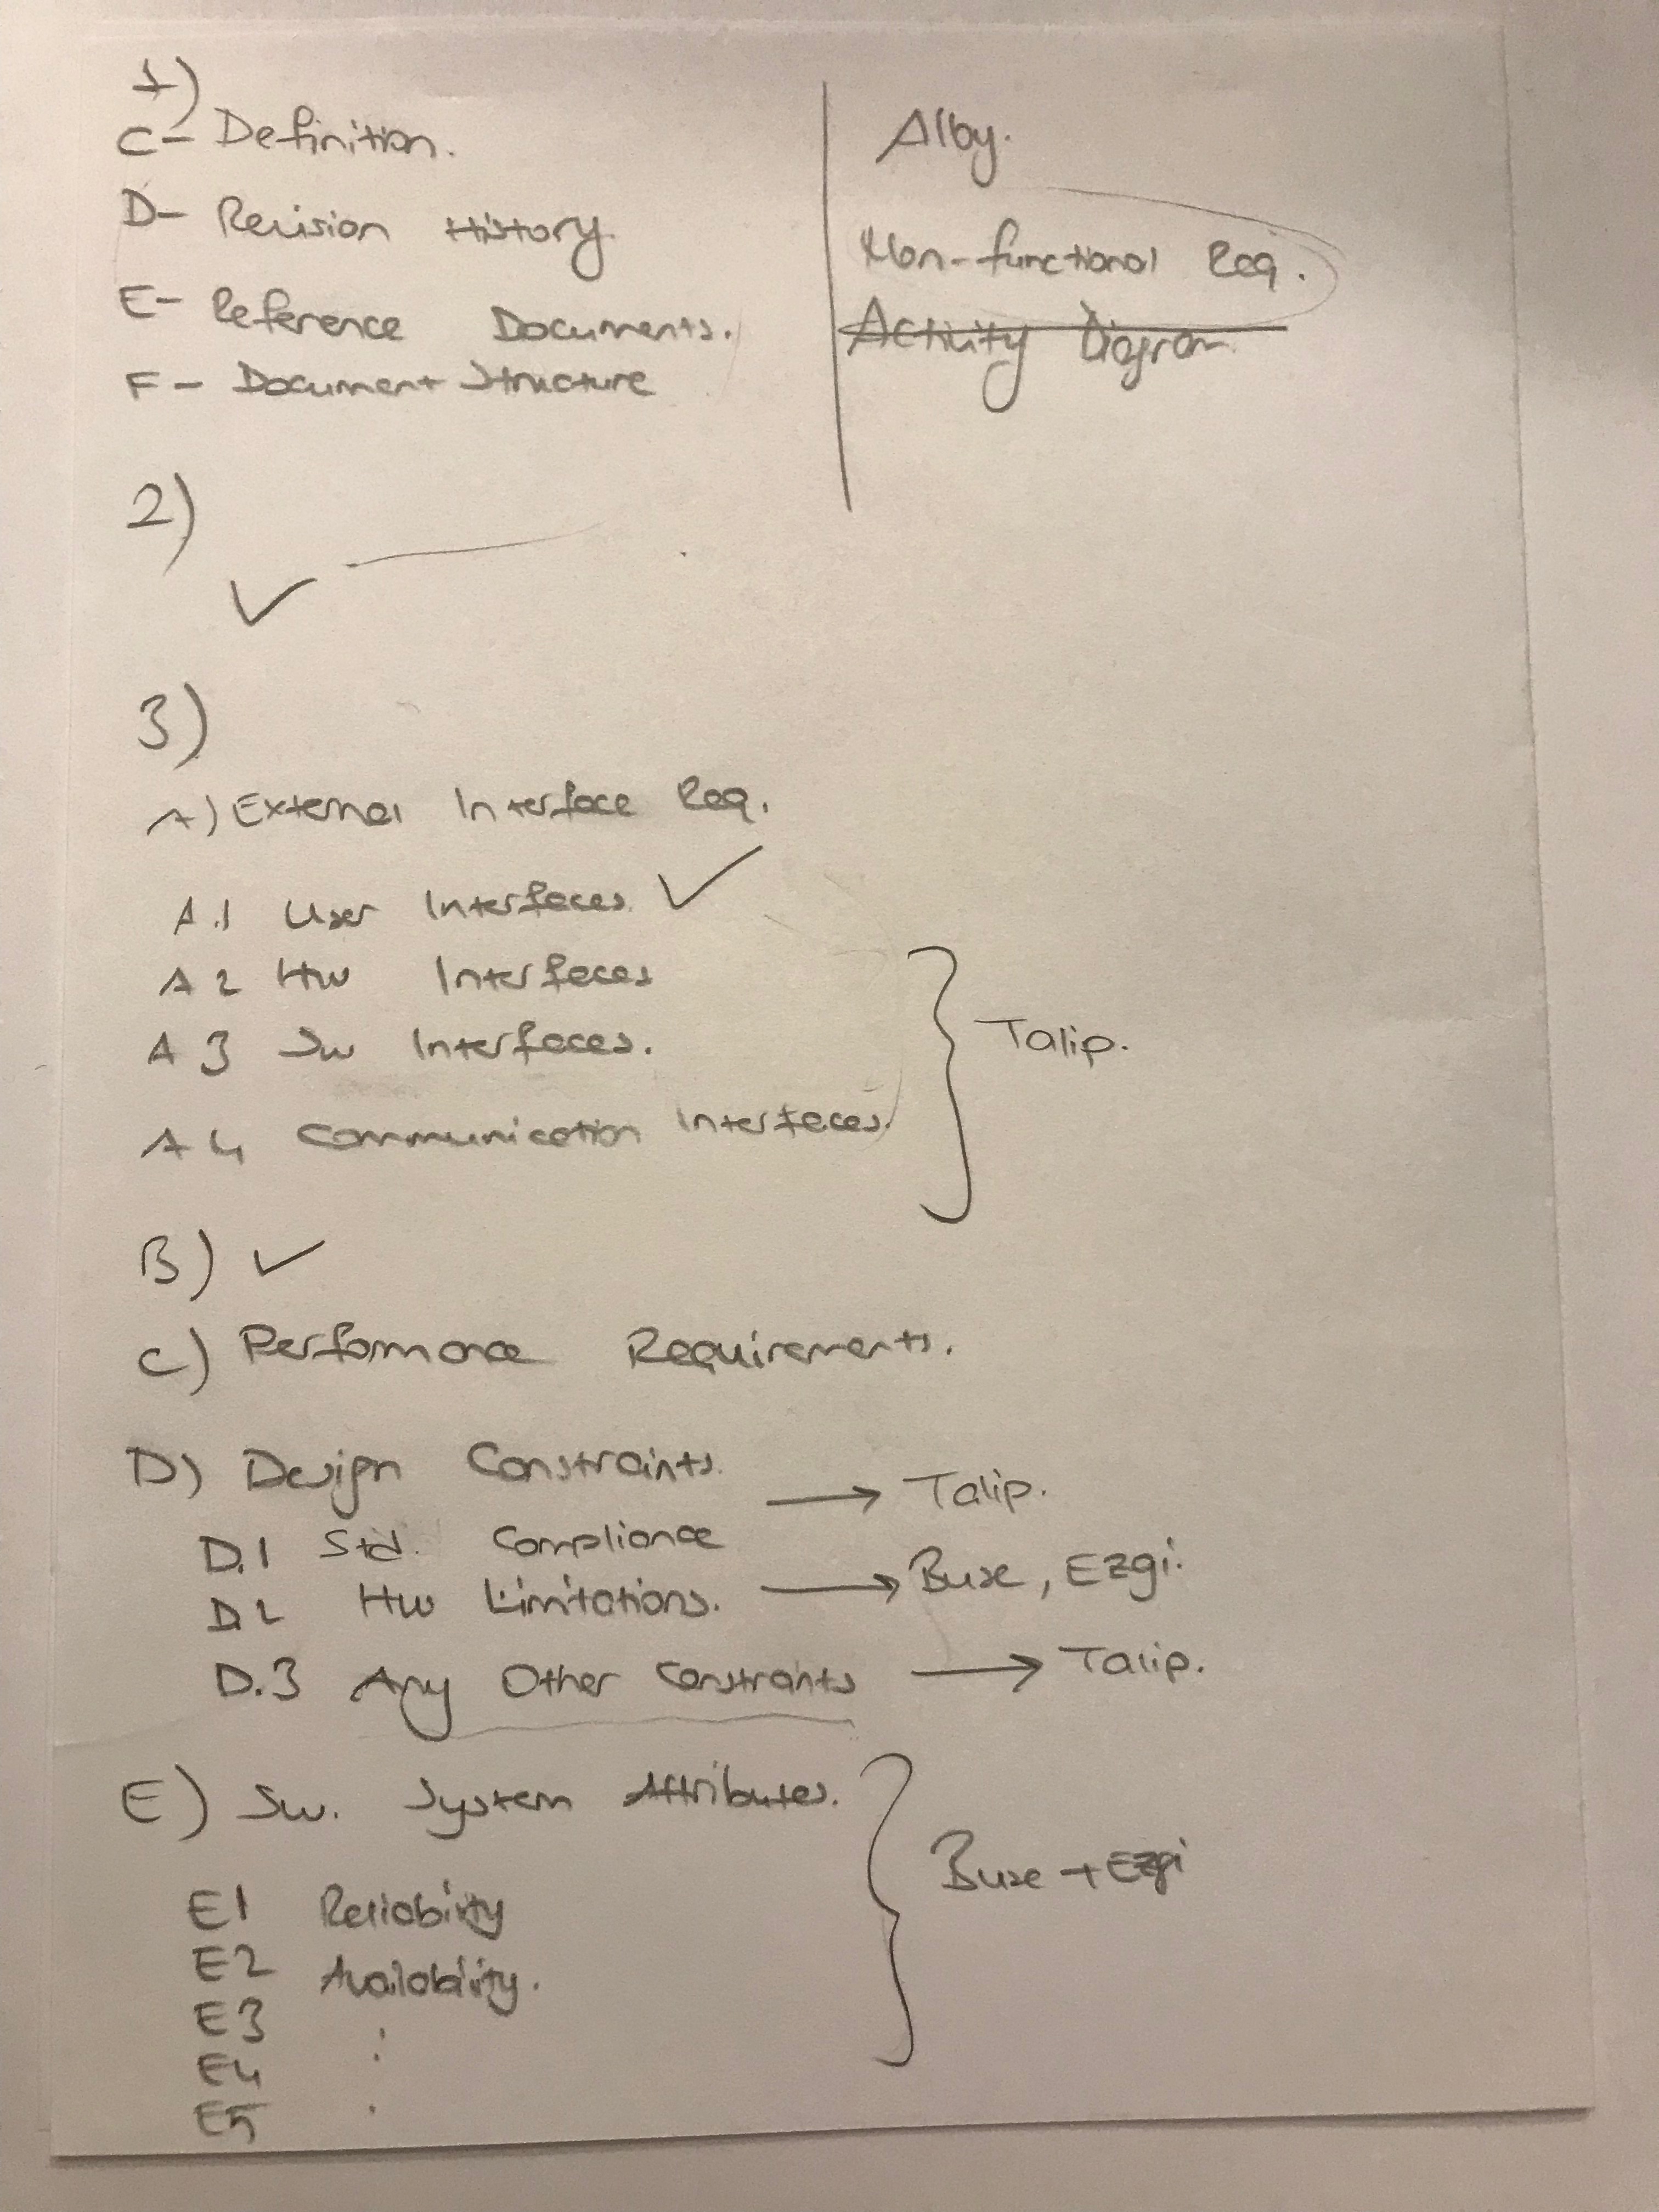 1)
C- Definition.
D- Revision History
E- Reference Documents.
F- Document Structure
Alby.
Non-functional Req.
Activity Diagram
2)
✓
3)
A) External Interface Req.
A.1 User Interfaces ✓
A 2 Hw Interfaces
A 3 Sw Interfaces.
A 4 Communication Interfaces.
Talip.
B) ✓
C) Performance Requirements.
D) Design Constraints.
→ Talip.
D.1 Std. Compliance
D2 Hw Limitations. → Buse, Ezgi.
D.3 Any Other Constraints → Talip.
E) Sw. System Attributes.
Buse + Ezgi
E1 Reliability
E2 Availability.
E3
E4
E5